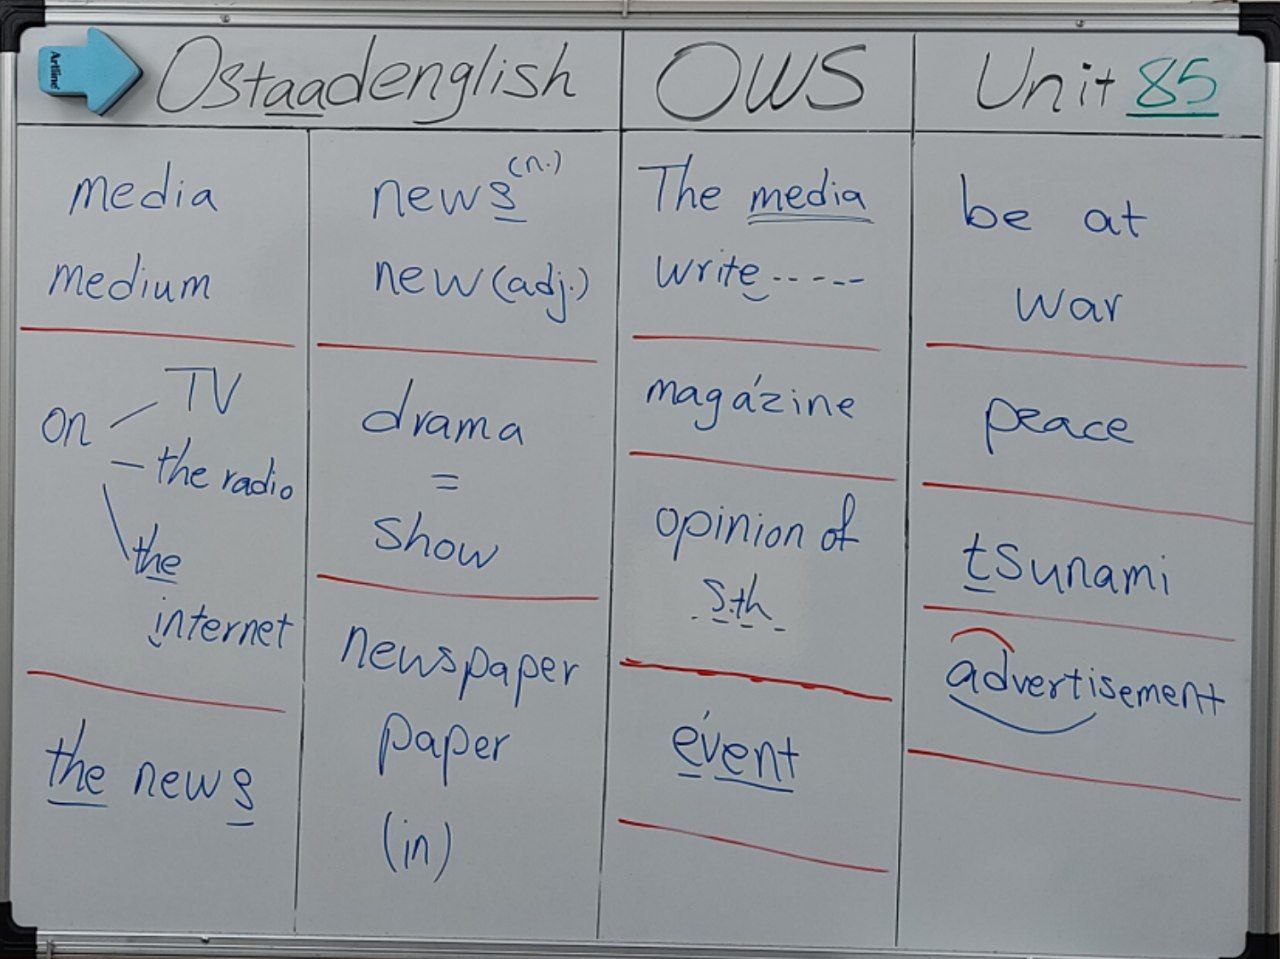 Artline
Ostaadenglish
OWS
Unit 85
media
medium
on
TV
the radio
the
internet
the news
news (n.)
new (adj.)
drama
=
show
newspaper
paper
(in)
The media
write-----
magázine
opinion of
s.th
évent
be at
war
peace
tsunami
advertisement